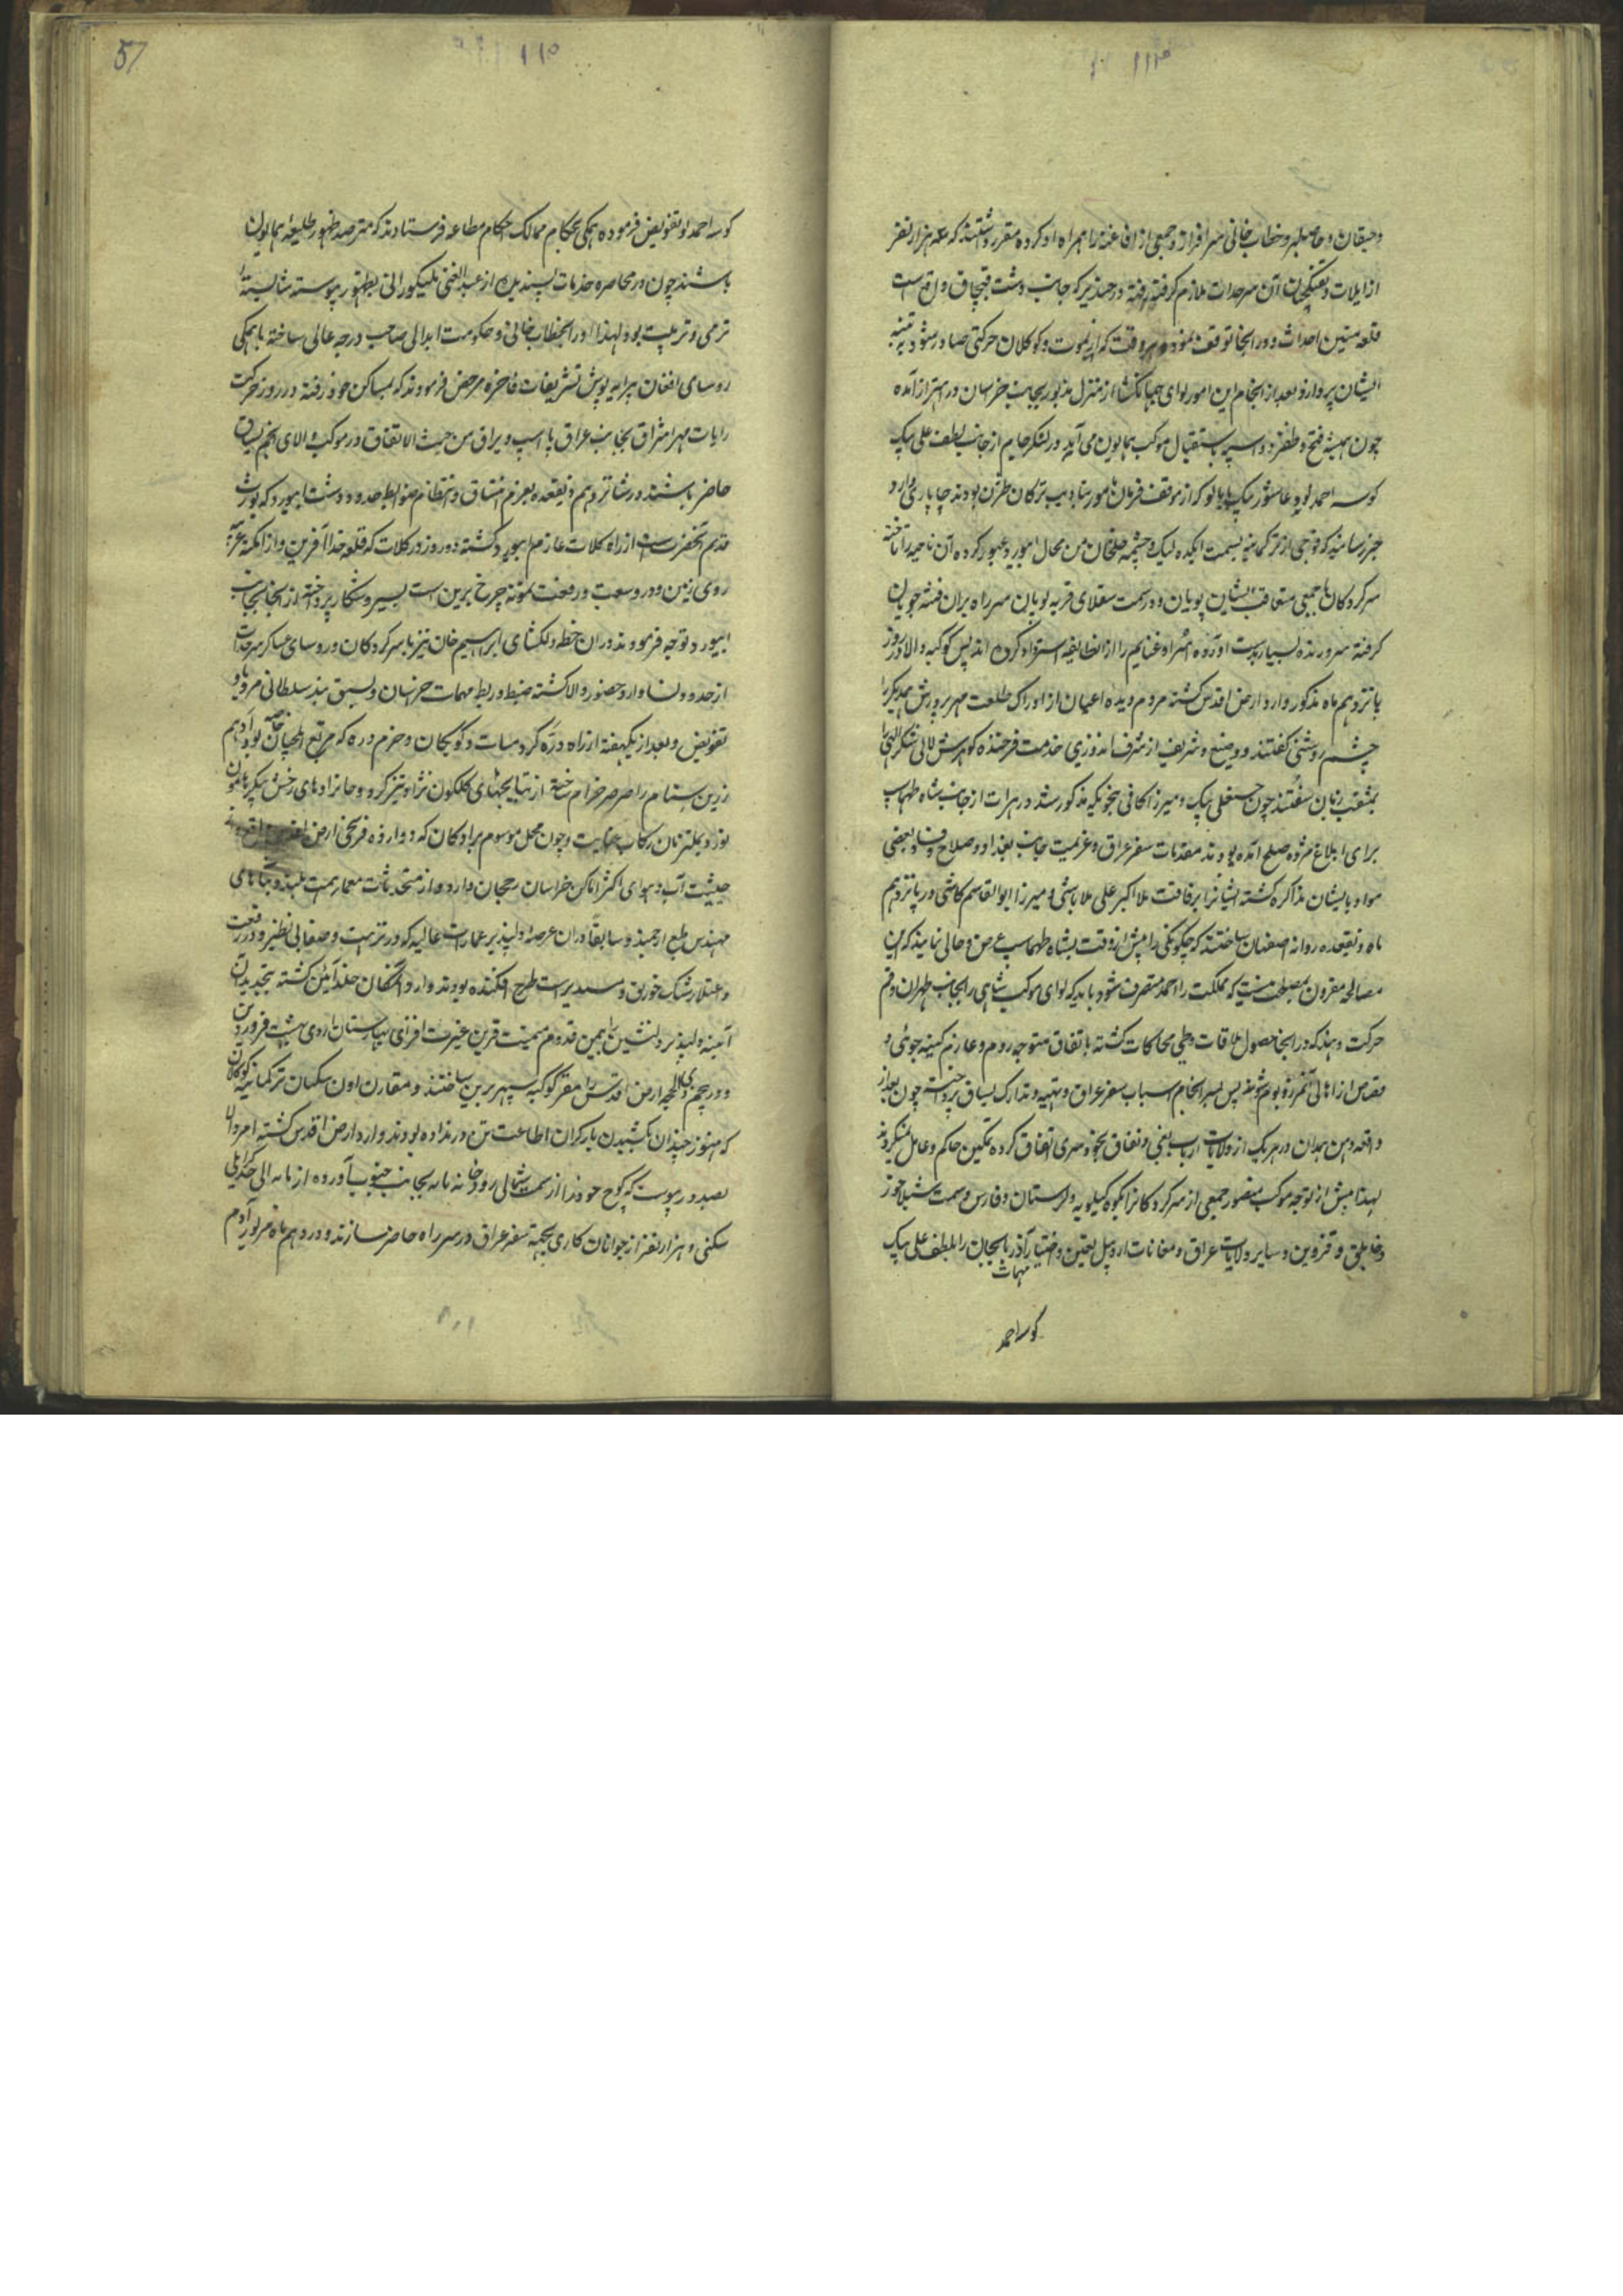 ۱۱۴
و جیقان و جاجیلبر و خطاب خانی سرافراز و جمعی از افاغنه را همراه او کرده مقرر داشتند که سه هزار نفر
از ایلات و تفنگچیان آن سرحدات ملازم گرفته رفته در حیدر که جانب دشت قبچاق واقع است
قلعه متین احداث و در آنجا توقف نموده هر وقت که از یموت و کوکلان حرکتی صادر شود به تنبیه
ایشان پردازد و بعد از انجام این امور لوای جهانگشا از منزل مذبور بجانب خراسان در اهتزاز آمده
چون همیشه فتح و ظفر دو اسپه باستقبال موکب همایون می آید در لنکر جام از جانب لطف علی بیک
کوسه احمدلو و عاشور بیک پاپالو که از موقف فرمان مامور بتادیب ترکان طژن بودند چاپاری وارد
خبر رسانید که فوجی از ترکمانیه بسمت ایکده لیک و چشمه خلجان من محال ابیورد عبور کرده آن ناحیه را تاخته
سرکردگان با جمعی متعاقب ایشان پویان و در سمت سفلای قریه لویان سر راه بران فتنه جویان
گرفته سر و زنده بسیار بدست آورده اسرا و غنایم را از آنطایفه استرداد کرده اند پس کوکبه والا در روز
پانزدهم ماه مذکور وارد ارض اقدس گشته مردم دیده اعیان از ادراک طلعت مهر پرورش همدیگر را
چشم روشنی گفتند و وضیع و شریف از شرف اندوزی خدمت فرخنده گوهرش لالی شکر الهی را
بمثقب زبان سفتند چون حسنعلی بیک و میرزا کافی بنحویکه مذکور شد در هرات از جانب شاه طهماسب
برای ابلاغ مژده صلح آمده بودند مقدمات سفر عراق و عزیمت جانب بغداد و صلاح وقت و بعضی
مواد با ایشان مذاکره گشته ایشانرا برفاقت ملا علی اکبر ملاباشی و میرزا ابوالقاسم کاشی در پانزدهم
ماه ذیقعده روانه اصفهان ساختند که چگونگی را پیش از وقت بشاه طهماسب عرض و حالی نمایند که این
مصالحه مقرون بمصلحت نیست که مملکت را احمد متصرف شود باید که لوای موکب شاهی را بجانب طهران و قم
حرکت دهند که در آنجا حصول ملاقات وطی محاکات گشته باتفاق متوجه روم و عازم کینه جوئی و
قصاص از اهالی آنمرز و بوم شویم پس بسرانجام اسباب سفر عراق و تهیه و تدارک یساق پرداخته چون بعد از
واقعه همدان در هر یک از ولایات ارباب بغی و نفاق بخودسری اتفاق کرده تمکین حاکم و عامل نمیکردند
لهذا پیش از توجه موکب منصور جمعی از سرکردگانرا بکوه کیلویه و لرستان و فارس و سمت شیلاخور
و خدابلق و قزوین و سایر ولایات عراق و مغانات اردبیل تعیین و اختیار مهمات آذربایجان را بلطف علی بیک
کوسه احمد
57
۱۱۵
کوسه احمدلو تفویض فرموده همگی بحکام ممالک احکام مطاعه فرستادند که مترصد ظهور طلیعه همایون
باشند چون در محاصره خدمات پسندیده از عبدالغنی علیکوزائی بظهور پیوسته شایسته
ترقی و تربیت بود لهذا او را بخطاب خانی و حکومت ابدالی صاحب درجه عالی ساخته با همگی
روسای افغان پیرایه پوش تشریفات فاخره مرخص فرمودند که بمساکن خود رفته در روز حرکت
رایات مهر اشراق بجانب عراق با اسپ و یراق من حیث الاتفاق در موکب والای انجم یساق
حاضر باشند و در شانزدهم ذیقعده بعزم انتساق و انتظام ضوابط حدود و دشت ابیورد که یورت
قدیم آنحضرت است از راه کلات عازم ابیورد گشته دو روز در کلات که قلعه خدا آفرین و از امکنه غریبه
روی زمین و در وسعت و رفعت نمونه چرخ برین است بسیر و شکار پرداخته از آنجا بجانب
ابیورد توجه فرمودند در ان خطه دلگشای ابراهیم خان نیز با سرکردگان و روسای عساکر سرحدات
از حدود نسا وارد حضور والا گشته ضبط و ربط مهمات خراسان و نسق بند سلطانی مرو باو
تفویض و بعد از یکهفته از راه دره کز و میاب و کوبکان و خرم دره که مرتع ایلخیان خاصه بود ادهم
زرین ستام را صرصر خرام ساخته از نتایجهای گلگون نژاد تیز گرد و خانزادهای رخش پیکر هامون
نورد ملتزمان رکاب عنایت و چون محل موسوم برادکان که دوازده فرسخی ارض اقدس واقع
بحیثیت آب و هوای اکثر اماکن خراسان رجحان دارد و از متحدثات معمار همت بلند و بناهای
مهندس طبع ارجمند و سابقاً در ان عرصه دلپذیر عمارات عالیه که در نزهت و صفا بی نظیر و در رفعت
و اعتلا رشک خورنق و سدیر است طرح افکنده بودند وارد آنمکان خلد آئین گشته بتجدید آن
ابنیه دلپذیر و دلنشین را بیمن قدوم میمنت قرین غیرت افزای بهارستان اردی بهشت فروردین
و در پنجم ذی الحجه ارض اقدس را مقر کوکبه سپهر برین ساختند و مقارن اون سکنان ترکمانیه کوکلان
که هنوز چندان بکشیدن بار گران اطاعت تن در نداده بودند وارد ارض اقدس گشته امر والا
بصدور پیوست که کوچ خود را از سمت شمالی رودخانه بجانب جنوب آورده از مانه الی جنگدلی
سکنی و هزار نفر از جوانان کاری بجهته سفر عراق در سر راه حاضر سازند و در دهم ماه مزبور آدم